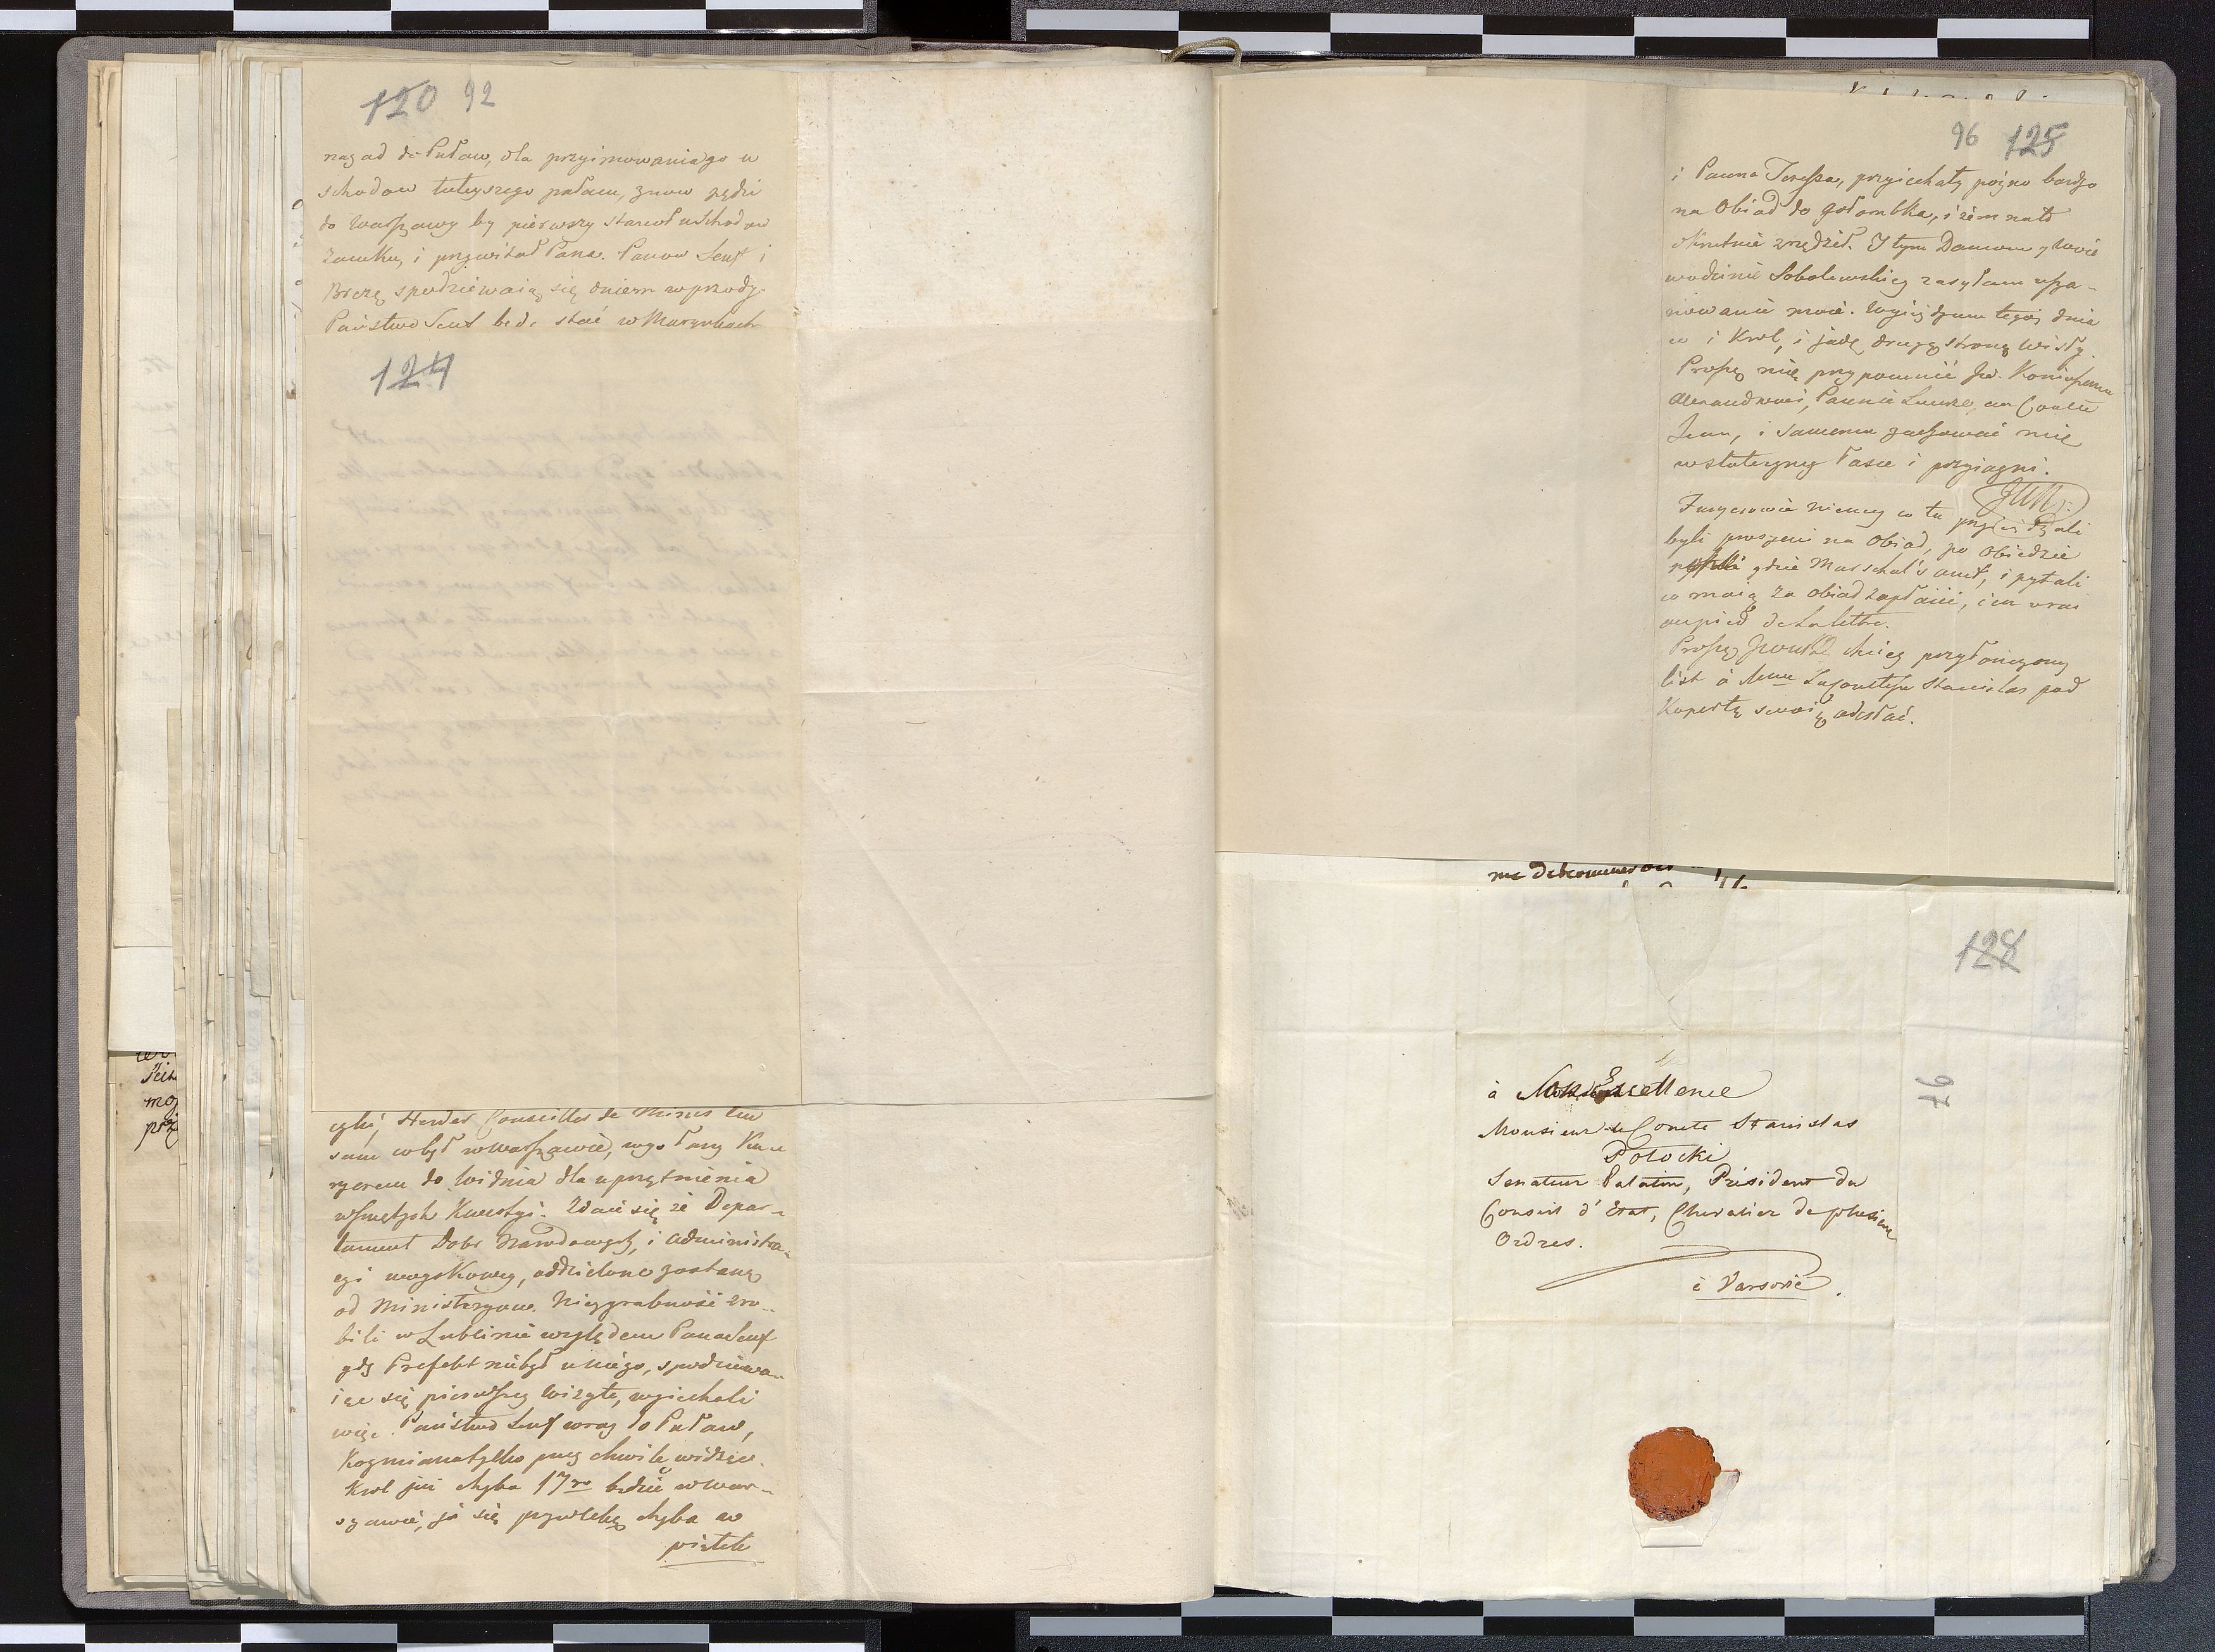 120 92
nazad do Puław, dla przyimowania go u
schodow tuteyszego pałacu, znow pędzi
do Warszawy by pierwszy stanoł u schodow
Zamku, i przywitał Pana. Panow Senf i
Brezę spodziewaią się dniem wprzody.
Państwo Senf będe stać w Marynkach
124
cyli Herder Conseiller de Mines ten
sam co był w Warszawie, wysłany Kur
ryerem do Widnia dla uprzętnienia
wszelkich Kwestyi. Zdaie się że Depar-
tament Dobr Narodowych, i administra-
cyi woyskowey, oddzielone zostaną
od Ministeryow. Niezgrabność zro-
bili w Lublinie względem Pana Senf
gdy Prefekt nie był u niego, spodziewa-
iąc się pierwszey wizyte, wyiechali
więc Państwo Senf wraz do Puław,
Kozmiana tylko przez chwile widząc.
Krol już chyba 17go będzie w War-
szawie, ja się przywlekę chyba w
piątek
96 125
i Panna Teressa, przyiechały pózno bardzo
na Obiad do Gołombka, i żem na to
okrutnie zrzędził. I tym Damom y Woie
wodzinie Sobolewskiey zasyłam usza-
nowanie moie. Wyieżdzam tegoż dnia
co i Krol, i jadę drugą stroną Wisły.
Proszę mię przypomnić Jw. Koniuszemu
Alexandrowi, Pannie Laurze, au Comte
Jean, i samemu zachować mię
w stateczney łasce i przyiazni.
Inzynierowie niemcy co tu przyieżdżali
byli proszeni na Obiad, po Obiedzie
gdzie Marschal's amt, i pytali
co maią za obiad zapłacić, i c'est vrai
au pied de la lettre.
Proszę JWWPD chciey przyłączony
list à Mme La Comtesse Stanislas pod
Kopertą swoią odesłać.
me
128
97
à Son Excellence
Monsieur le Comte Stanislas
Potocki
Senateur Palatin, Président du
Conseil d'Etat, Chevalier de plusieurs
Ordres.
à Varsovie.